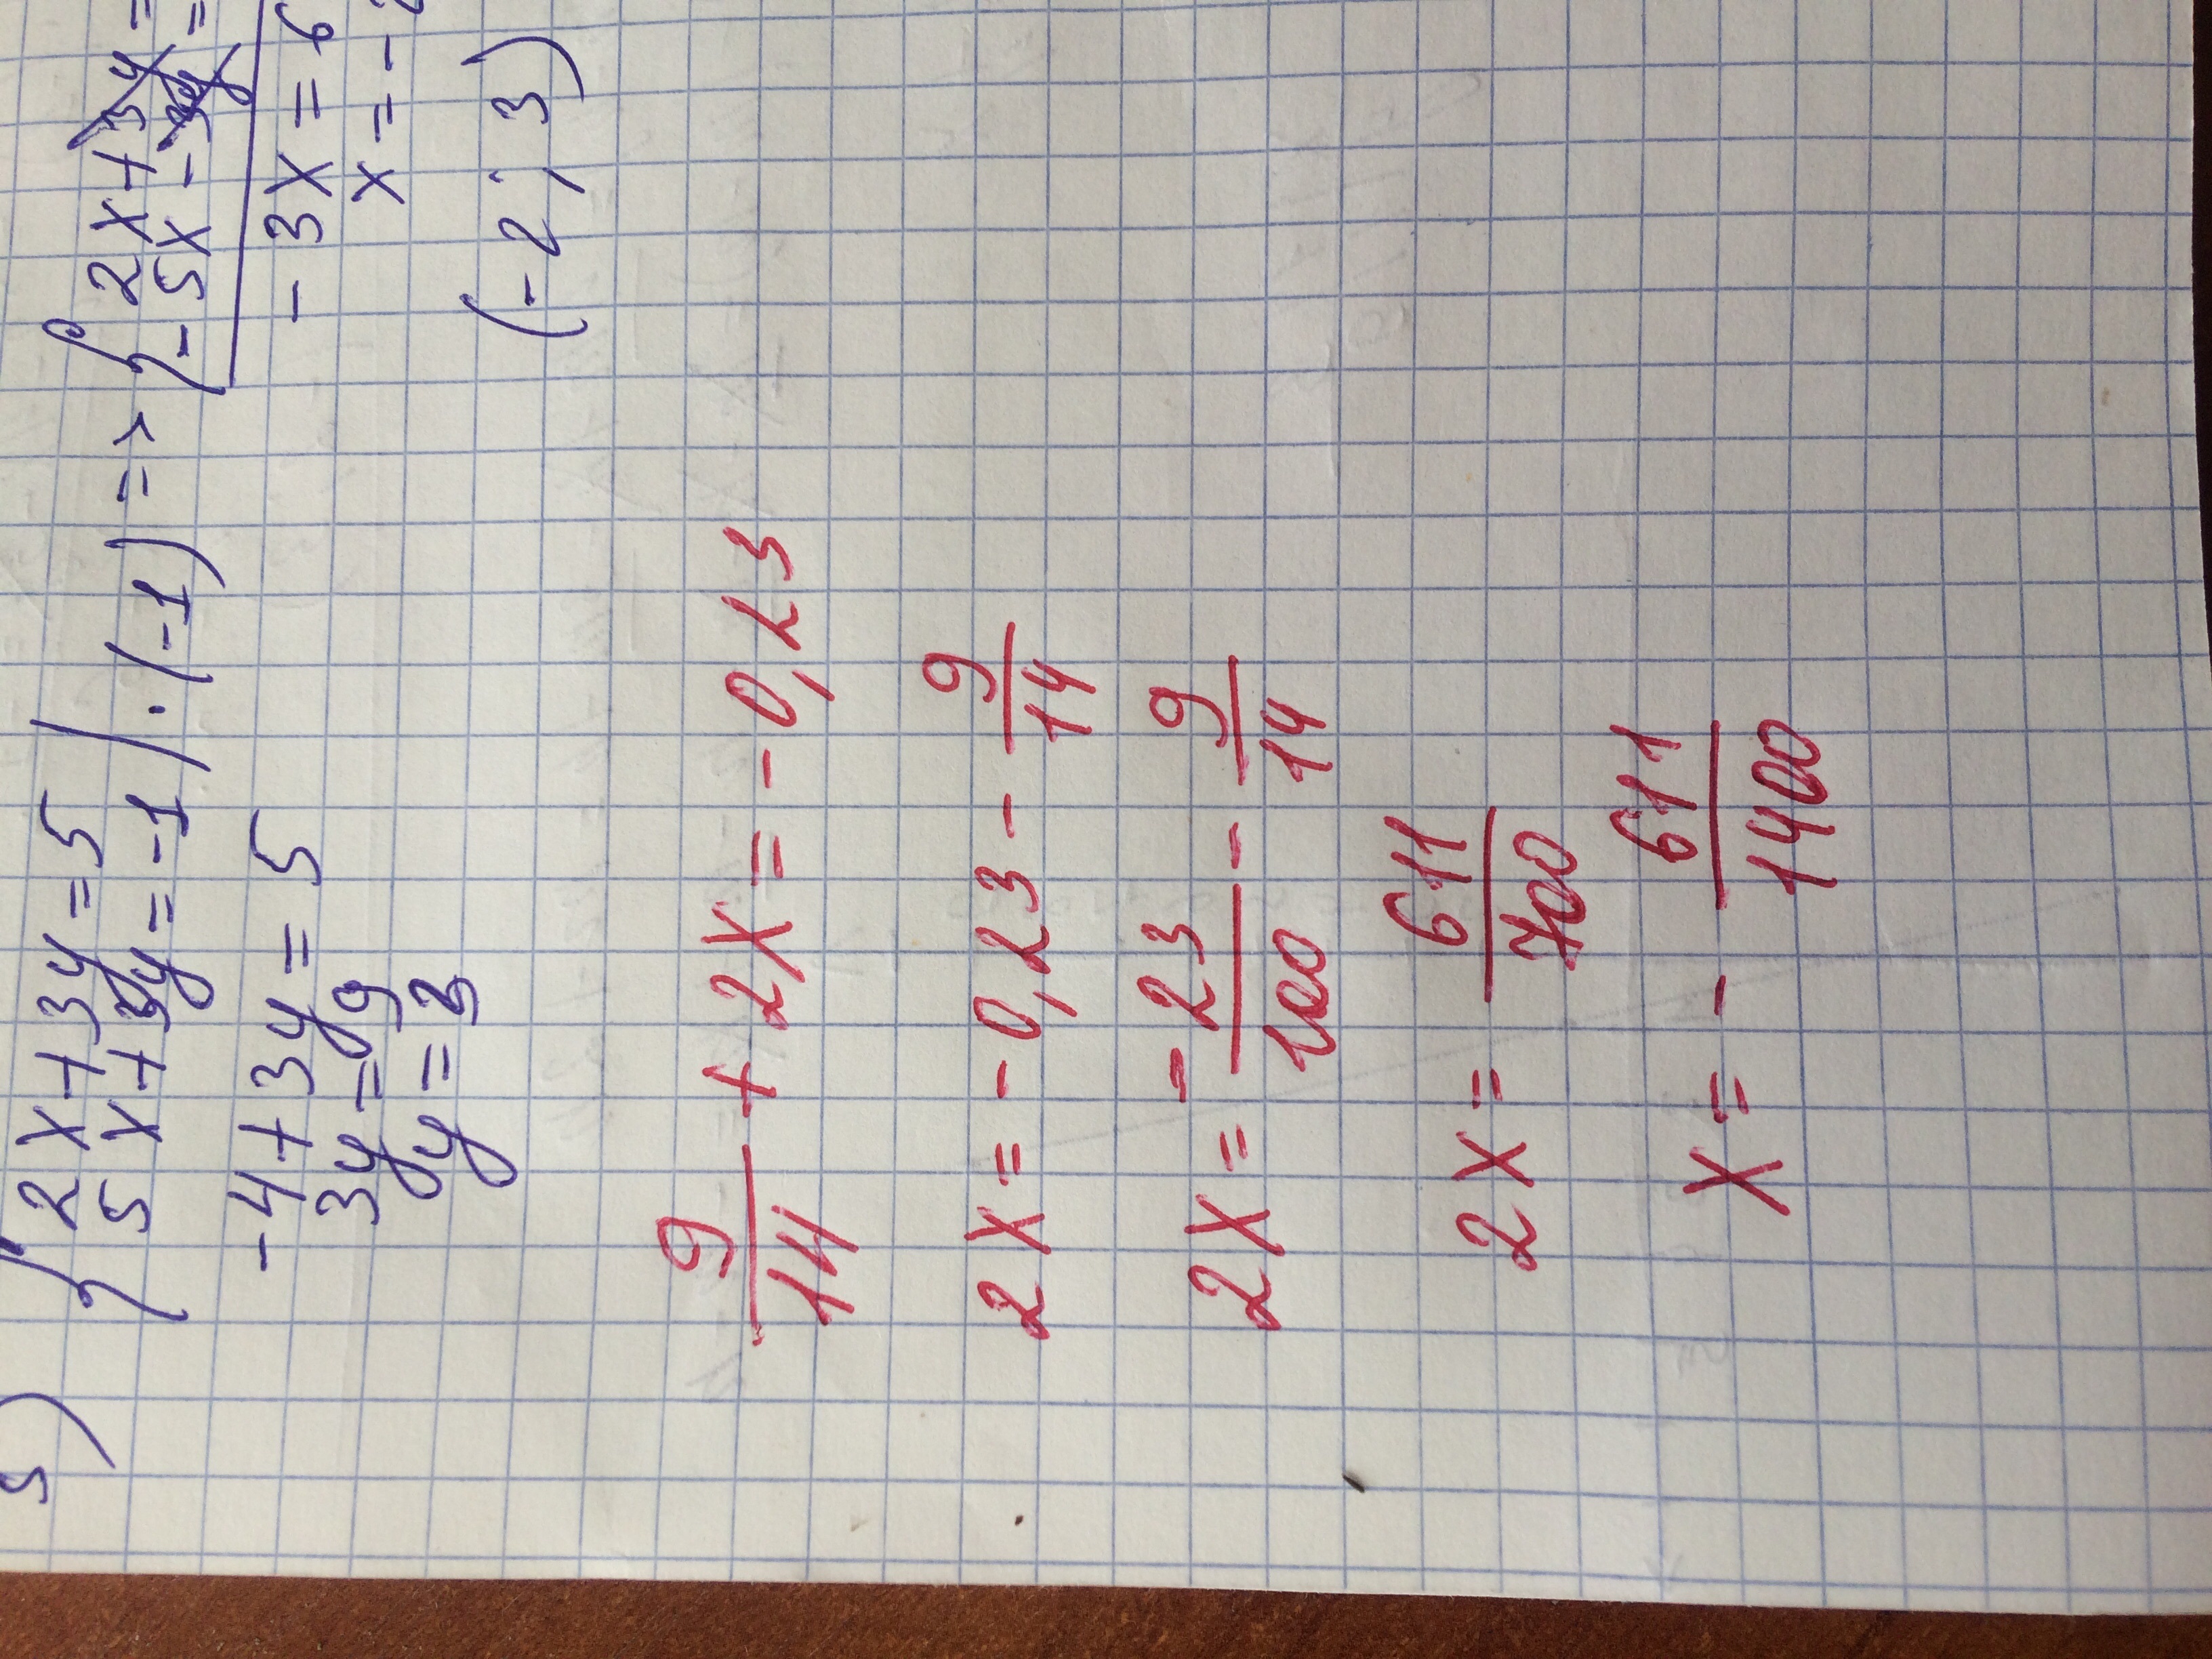 5)
{ 2x+3y=5
5x+3y=-1 | ·(-1) => { 2x+3y=
-5x-3y=
-4+3y=5
3y=9
y=3
-3x=6
x=-2
(-2;3)
9/14 + 2x = -0,23
2x = -0,23 - 9/14
2x = -23/100 - 9/14
2x = 611/700
x = - 611/1400